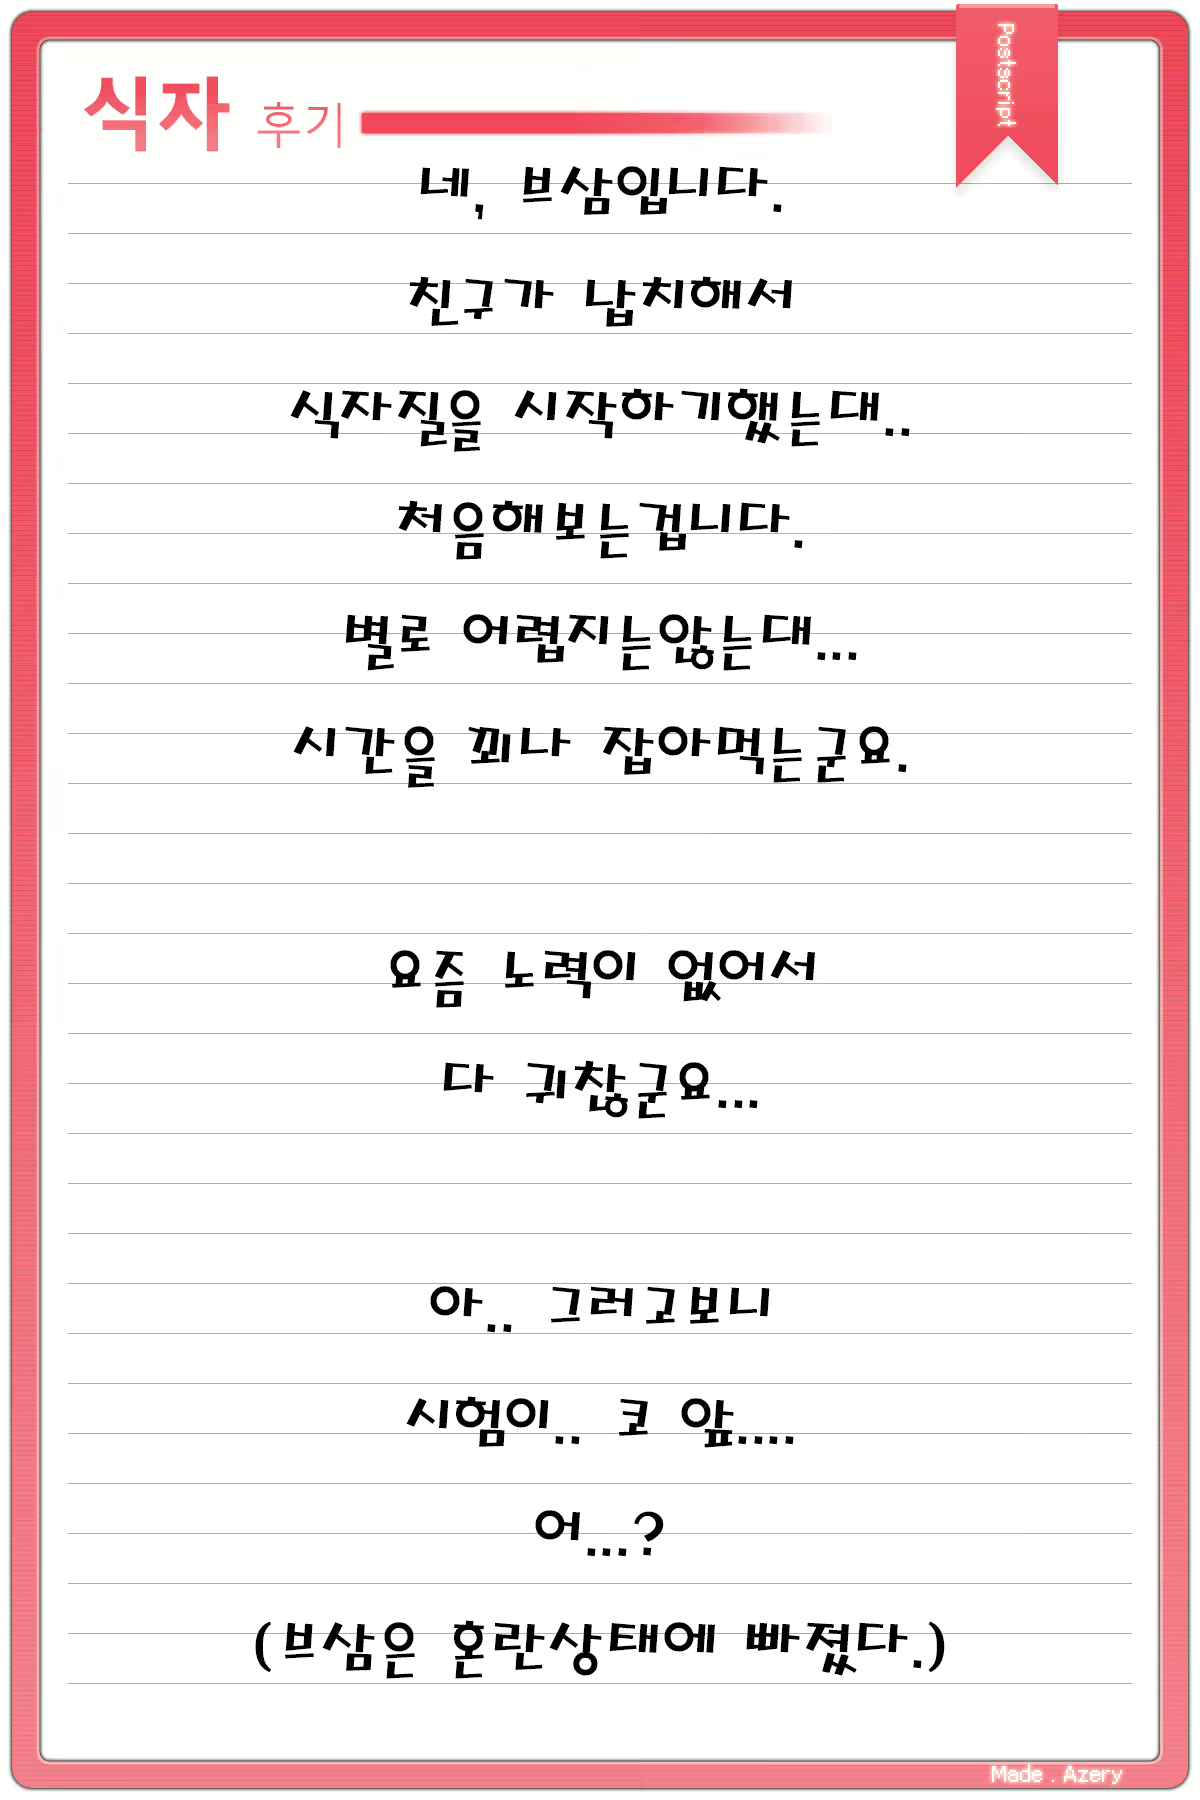 식자 후기
Postscript
네, 브삼입니다.
친구가 납치해서
식자질을 시작하기했는대..
처음해보는겁니다.
별로 어렵지는않는대...
시간을 꾀나 잡아먹는군요.
요즘 노력이 없어서
다 귀찮군요...
아.. 그러고보니
시험이.. 코 앞....
어...?
(브삼은 혼란상태에 빠졌다.)
Made . Azery